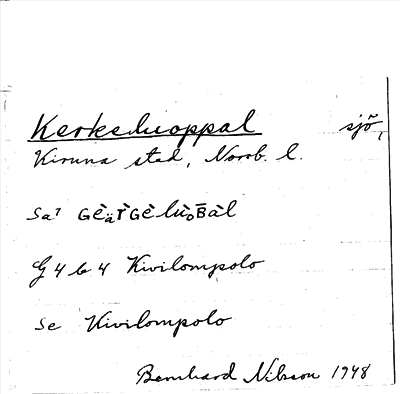 Kerkeluoppal sjö,
Kiruna stad, Norrb. l.
Sa! GÈäṙGÈ lùoB̄àl
G 4 b 4 Kivilompolo
Se Kivilompolo
Bernhard Nilsson 1948